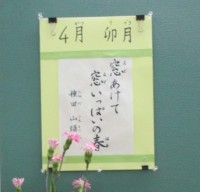 4月 卯月
窓あけて
窓いっぱいの春
種田 山頭火